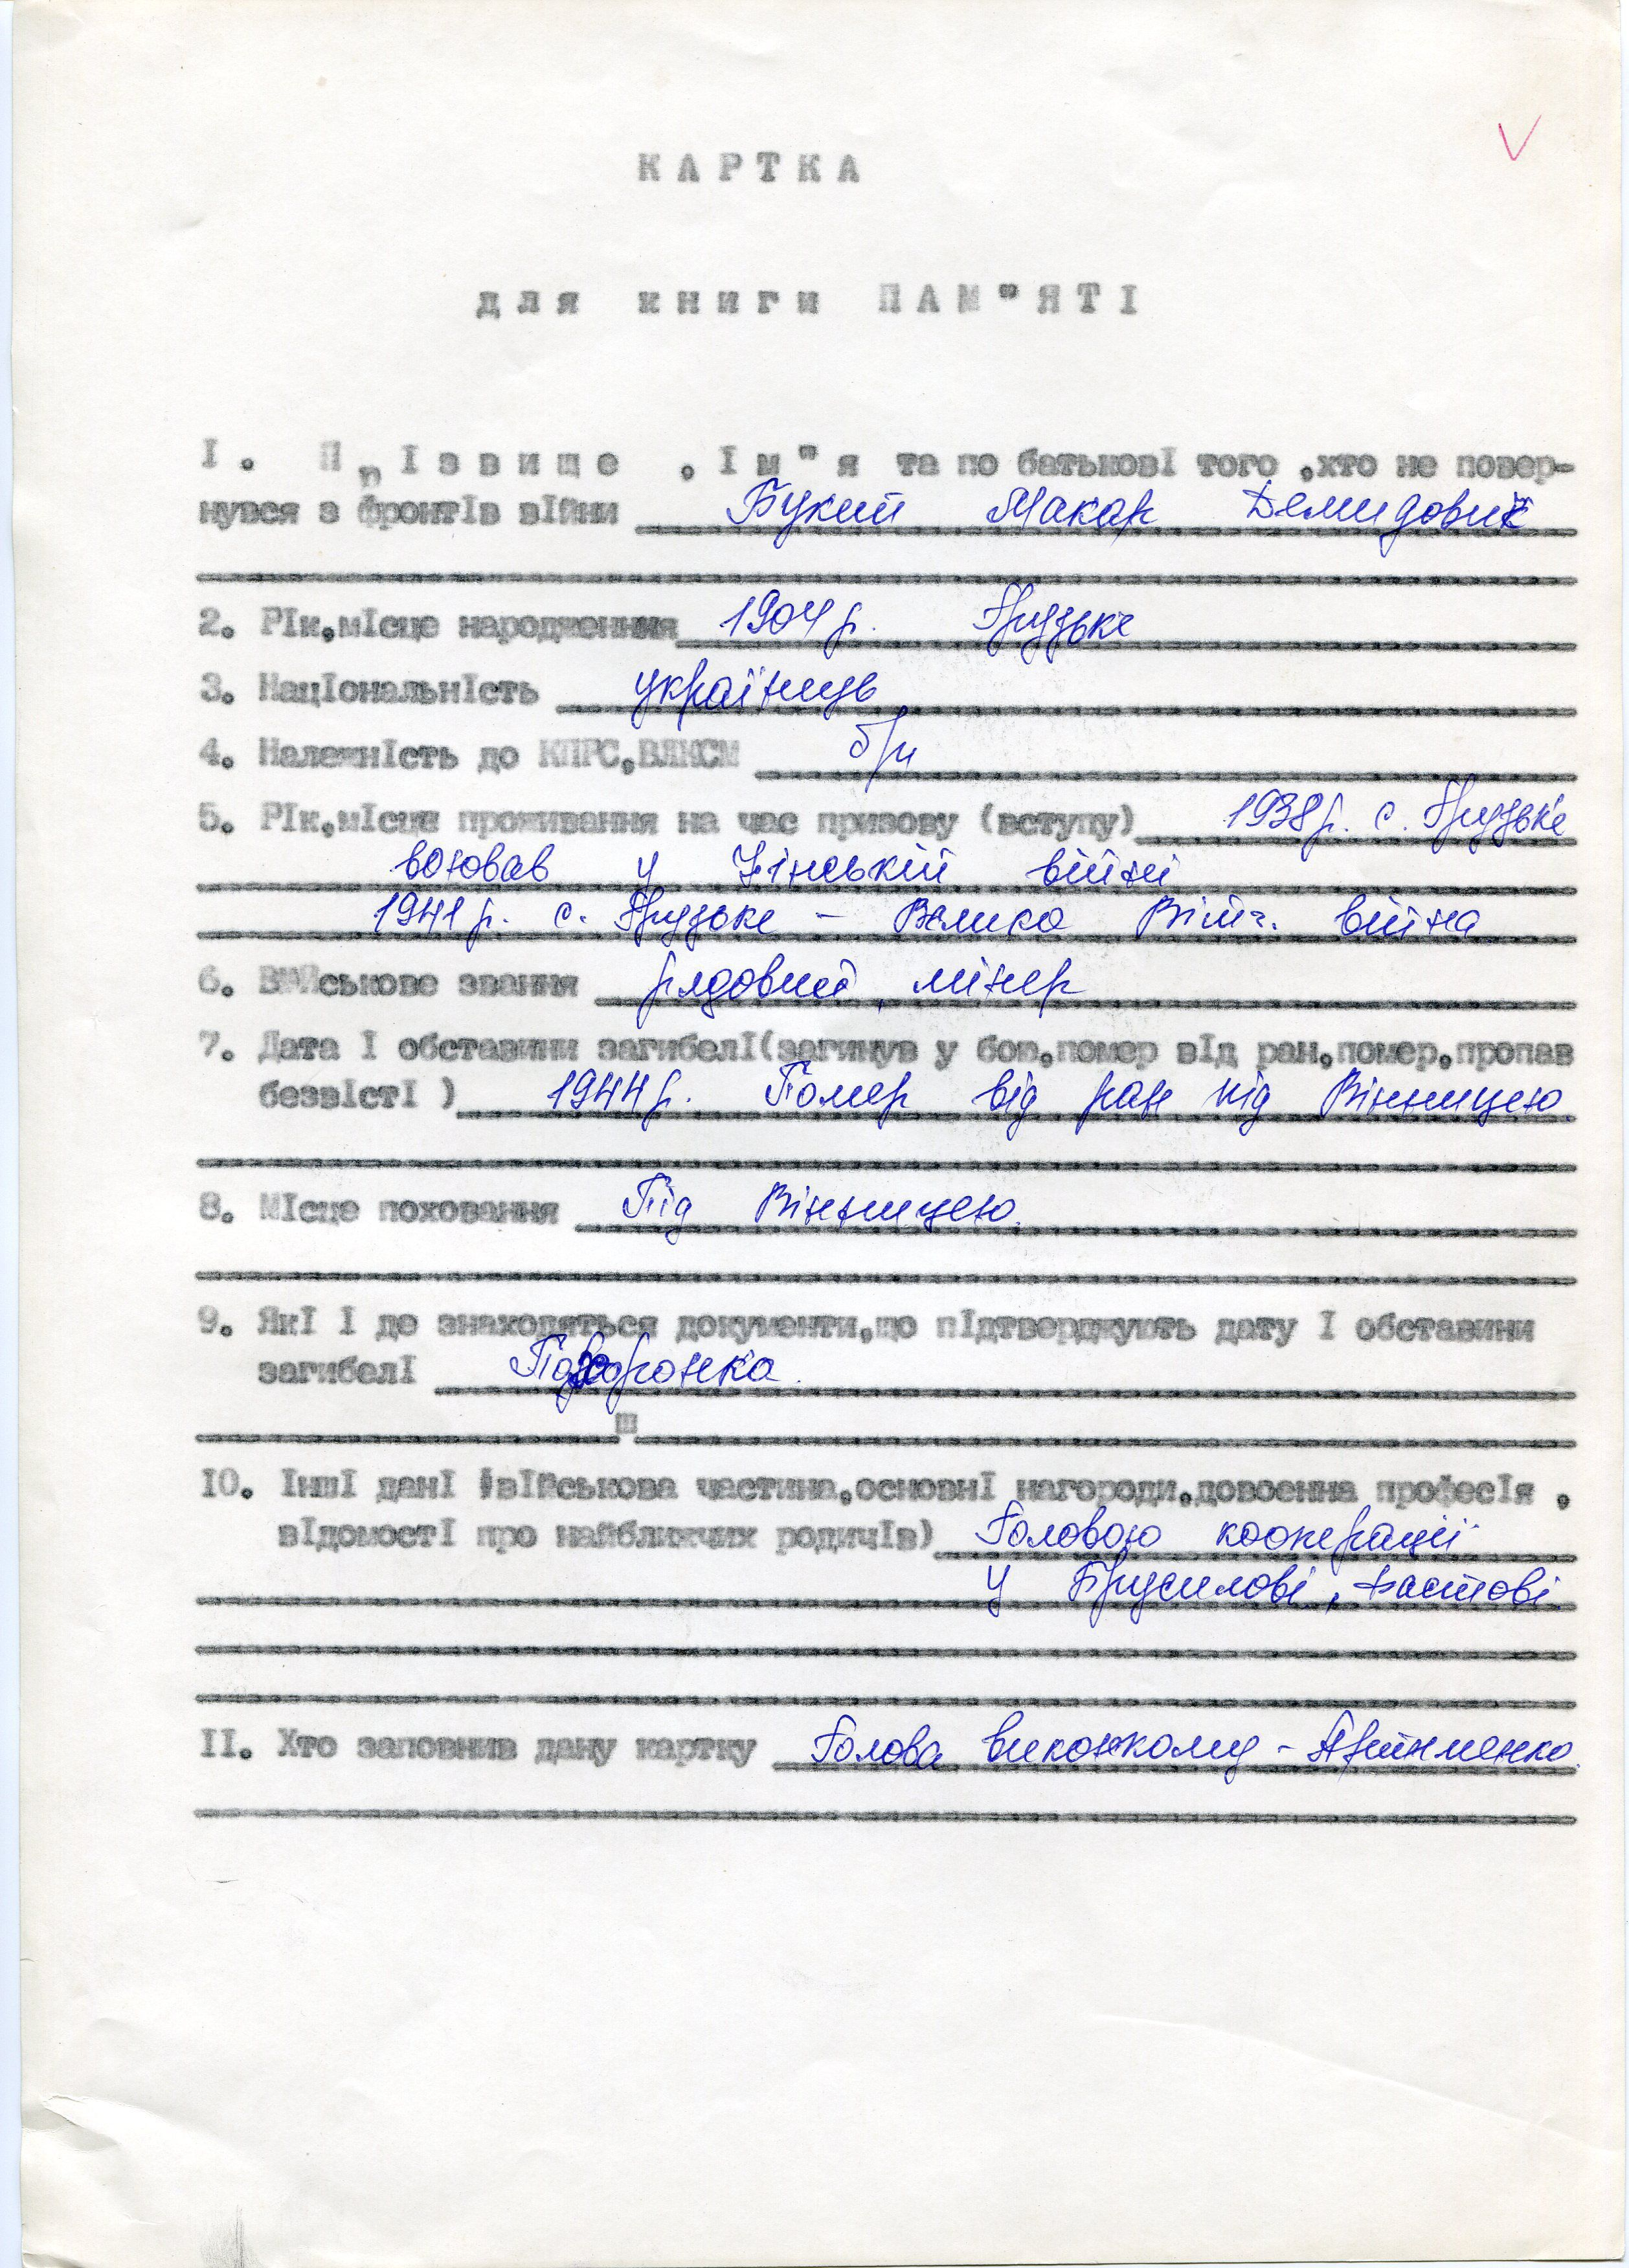 КАРТКА
для книги ПАМ"ЯТІ
І. Прізвище, Ім"я та по батькові того, хто не повер-
нувся з фронтів війни Букий Макар Демидович
2. Рік, місце народження 1904 р. Грузьке
3. Національність українець
4. Належність до КПРС, ВЛКСМ б/п
5. Рік, місце проживання на час призову (вступу) 1938 р. с. Грузьке
воював у Фінській війні
1941 р. с. Грузьке – Велика Вітч. війна
6. Військове звання рядовий, мінер
7. Дата і обставини загибелі (загинув у бою, помер від ран, помер, пропав
безвісті) 1944 р. Помер від ран під Вінницею.
8. Місце поховання Під Вінницею.
9. Які і де знаходяться документи, що підтверджують дату і обставини
загибелі Похоронка.
10. Інші дані (військова частина, основні нагороди, довоєнна професія,
відомості про найближчих родичів) Головою кооперації
у Брусилові, Фастові.
ІІ. Хто заповнив дану картку Голова виконкому –